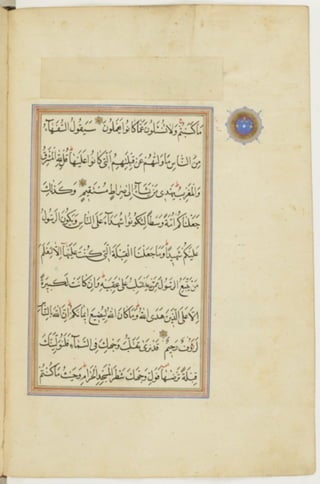 مَا كَسَبْتُمْ وَلَا تُسْئَلُونَ عَمَّا كَانُوا يَعْمَلُونَ سَيَقُولُ السُّفَهَاءُ
مِنَ النَّاسِ مَا وَلّٰهُمْ عَنْ قِبْلَتِهِمُ الَّتِي كَانُوا عَلَيْهَا قُلْ لِلّٰهِ الْمَشْرِقُ
وَالْمَغْرِبُ يَهْدِي مَنْ يَشَاءُ إِلَى صِرَاطٍ مُسْتَقِيمٍ وَكَذٰلِكَ
جَعَلْنَاكُمْ أُمَّةً وَسَطًا لِتَكُونُوا شُهَدَاءَ عَلَى النَّاسِ وَيَكُونَ الرَّسُولُ
عَلَيْكُمْ شَهِيدًا وَمَا جَعَلْنَا الْقِبْلَةَ الَّتِي كُنْتَ عَلَيْهَا إِلَّا لِنَعْلَمَ
مَنْ يَتَّبِعُ الرَّسُولَ مِمَّنْ يَنْقَلِبُ عَلَى عَقِبَيْهِ وَإِنْ كَانَتْ لَكَبِيرَةً
إِلَّا عَلَى الَّذِينَ هَدَى اللّٰهُ وَمَا كَانَ اللّٰهُ لِيُضِيعَ إِيمَانَكُمْ إِنَّ اللّٰهَ بِالنَّاسِ
لَرَؤُفٌ رَحِيمٌ قَدْ نَرَى تَقَلُّبَ وَجْهِكَ فِي السَّمَاءِ فَلَنُوَلِّيَنَّكَ
قِبْلَةً تَرْضٰهَا فَوَلِّ وَجْهَكَ شَطْرَ الْمَسْجِدِ الْحَرَامِ وَحَيْثُ مَا كُنْتُمْ